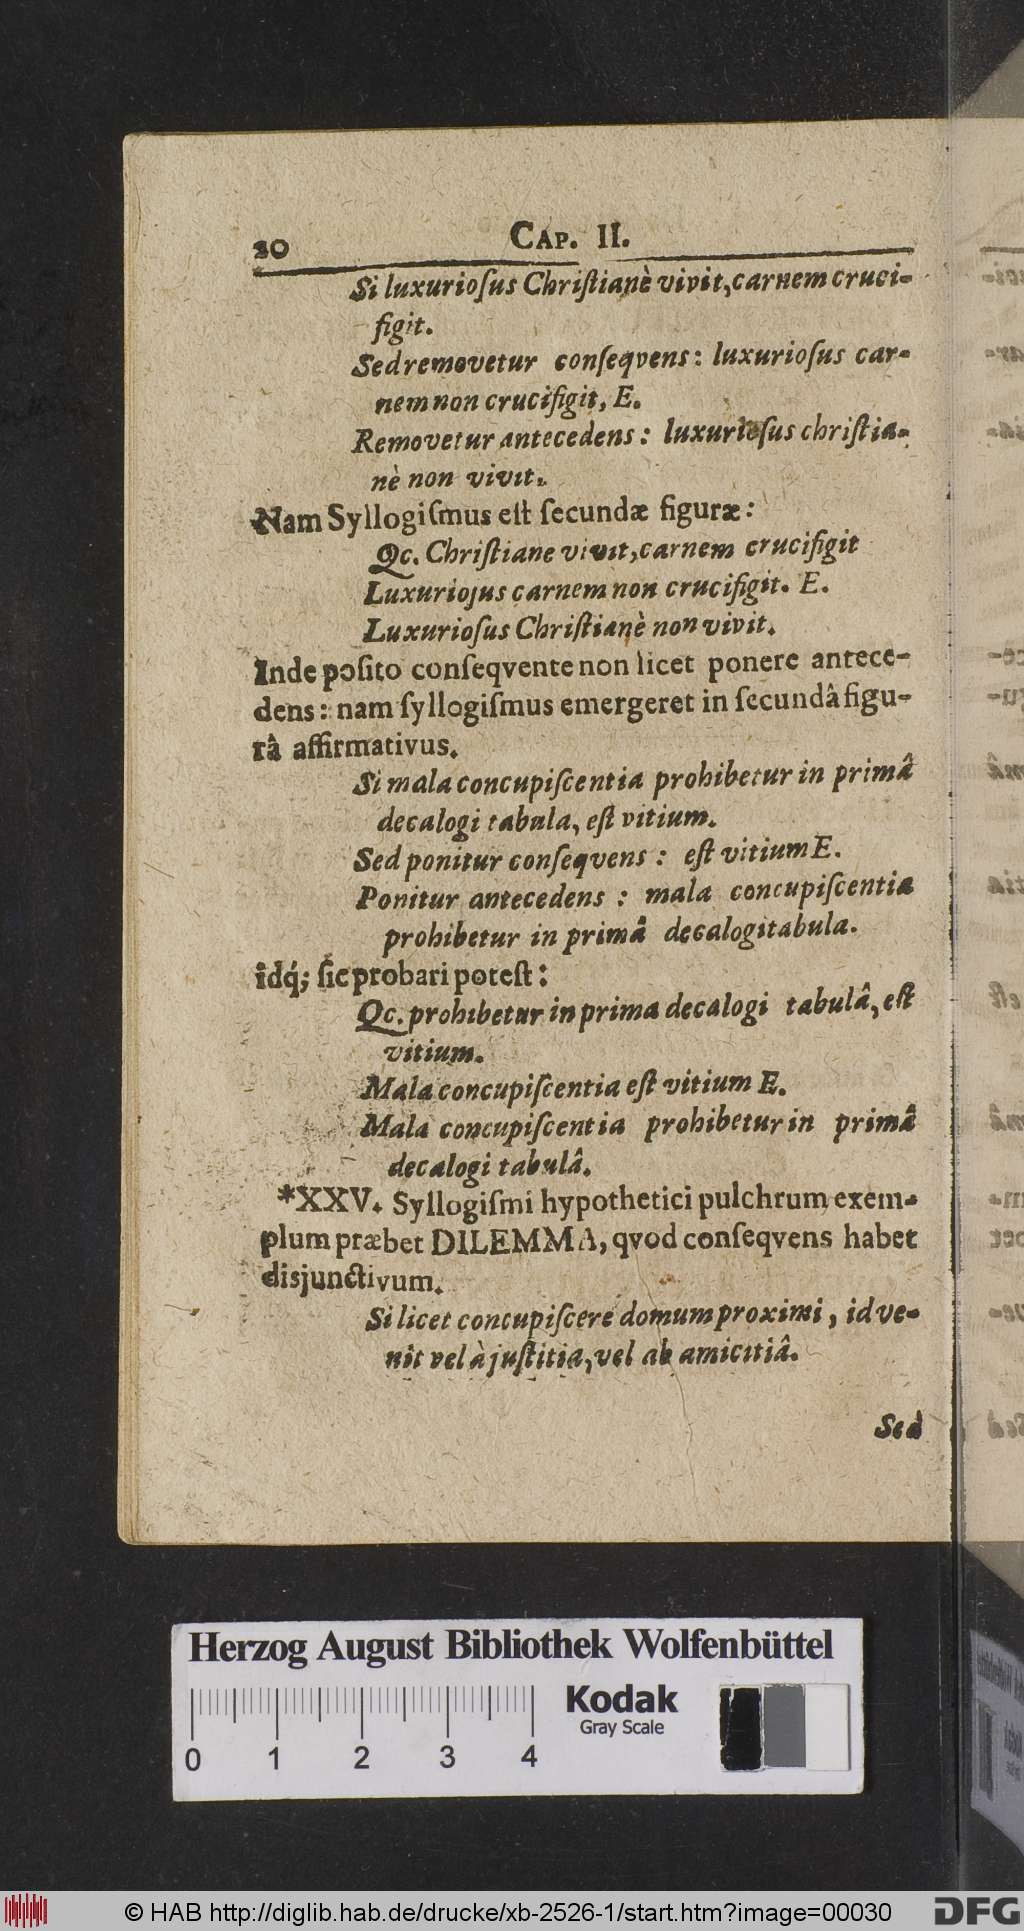 20 CAP. II.
Si luxurioſus Chriſtianè vivit, carnem cruci-
figit.
Sed removetur conſeqvens: luxurioſus car-
nem non crucifigit, E.
Removetur antecedens: luxurioſus chriſtia-
nè non vivit.
Nam Syllogiſmus eſt ſecundæ figuræ:
Qc. Chriſtiane vivit, carnem crucifigit
Luxurioſus carnem non crucifigit. E.
Luxurioſus Chriſtianè non vivit.
Inde poſito conſeqvente non licet ponere antece-
dens: nam ſyllogiſmus emergeret in ſecundâ figu-
râ affirmativus.
Si mala concupiſcentia prohibetur in primâ
decalogi tabula, eſt vitium.
Sed ponitur conſeqvens: eſt vitium E.
Ponitur antecedens: mala concupiſcentia
prohibetur in primâ decalogi tabula.
idq́; ſic probari poteſt:
Qc. prohibetur in prima decalogi tabulâ, eſt
vitium.
Mala concupiſcentia eſt vitium E.
Mala concupiſcentia prohibetur in primâ
decalogi tabulâ.
*XXV. Syllogiſmi hypothetici pulchrum exem-
plum præbet DILEMMA, qvod conſeqvens habet
disjunctivum.
Si licet concupiſcere domum proximi, id ve-
nit vel à juſtitia, vel ab amicitiâ.
Sed
Herzog August Bibliothek Wolfenbüttel
Kodak
Gray Scale
0 1 2 3 4
© HAB http://diglib.hab.de/drucke/xb-2526-1/start.htm?image=00030
DFG